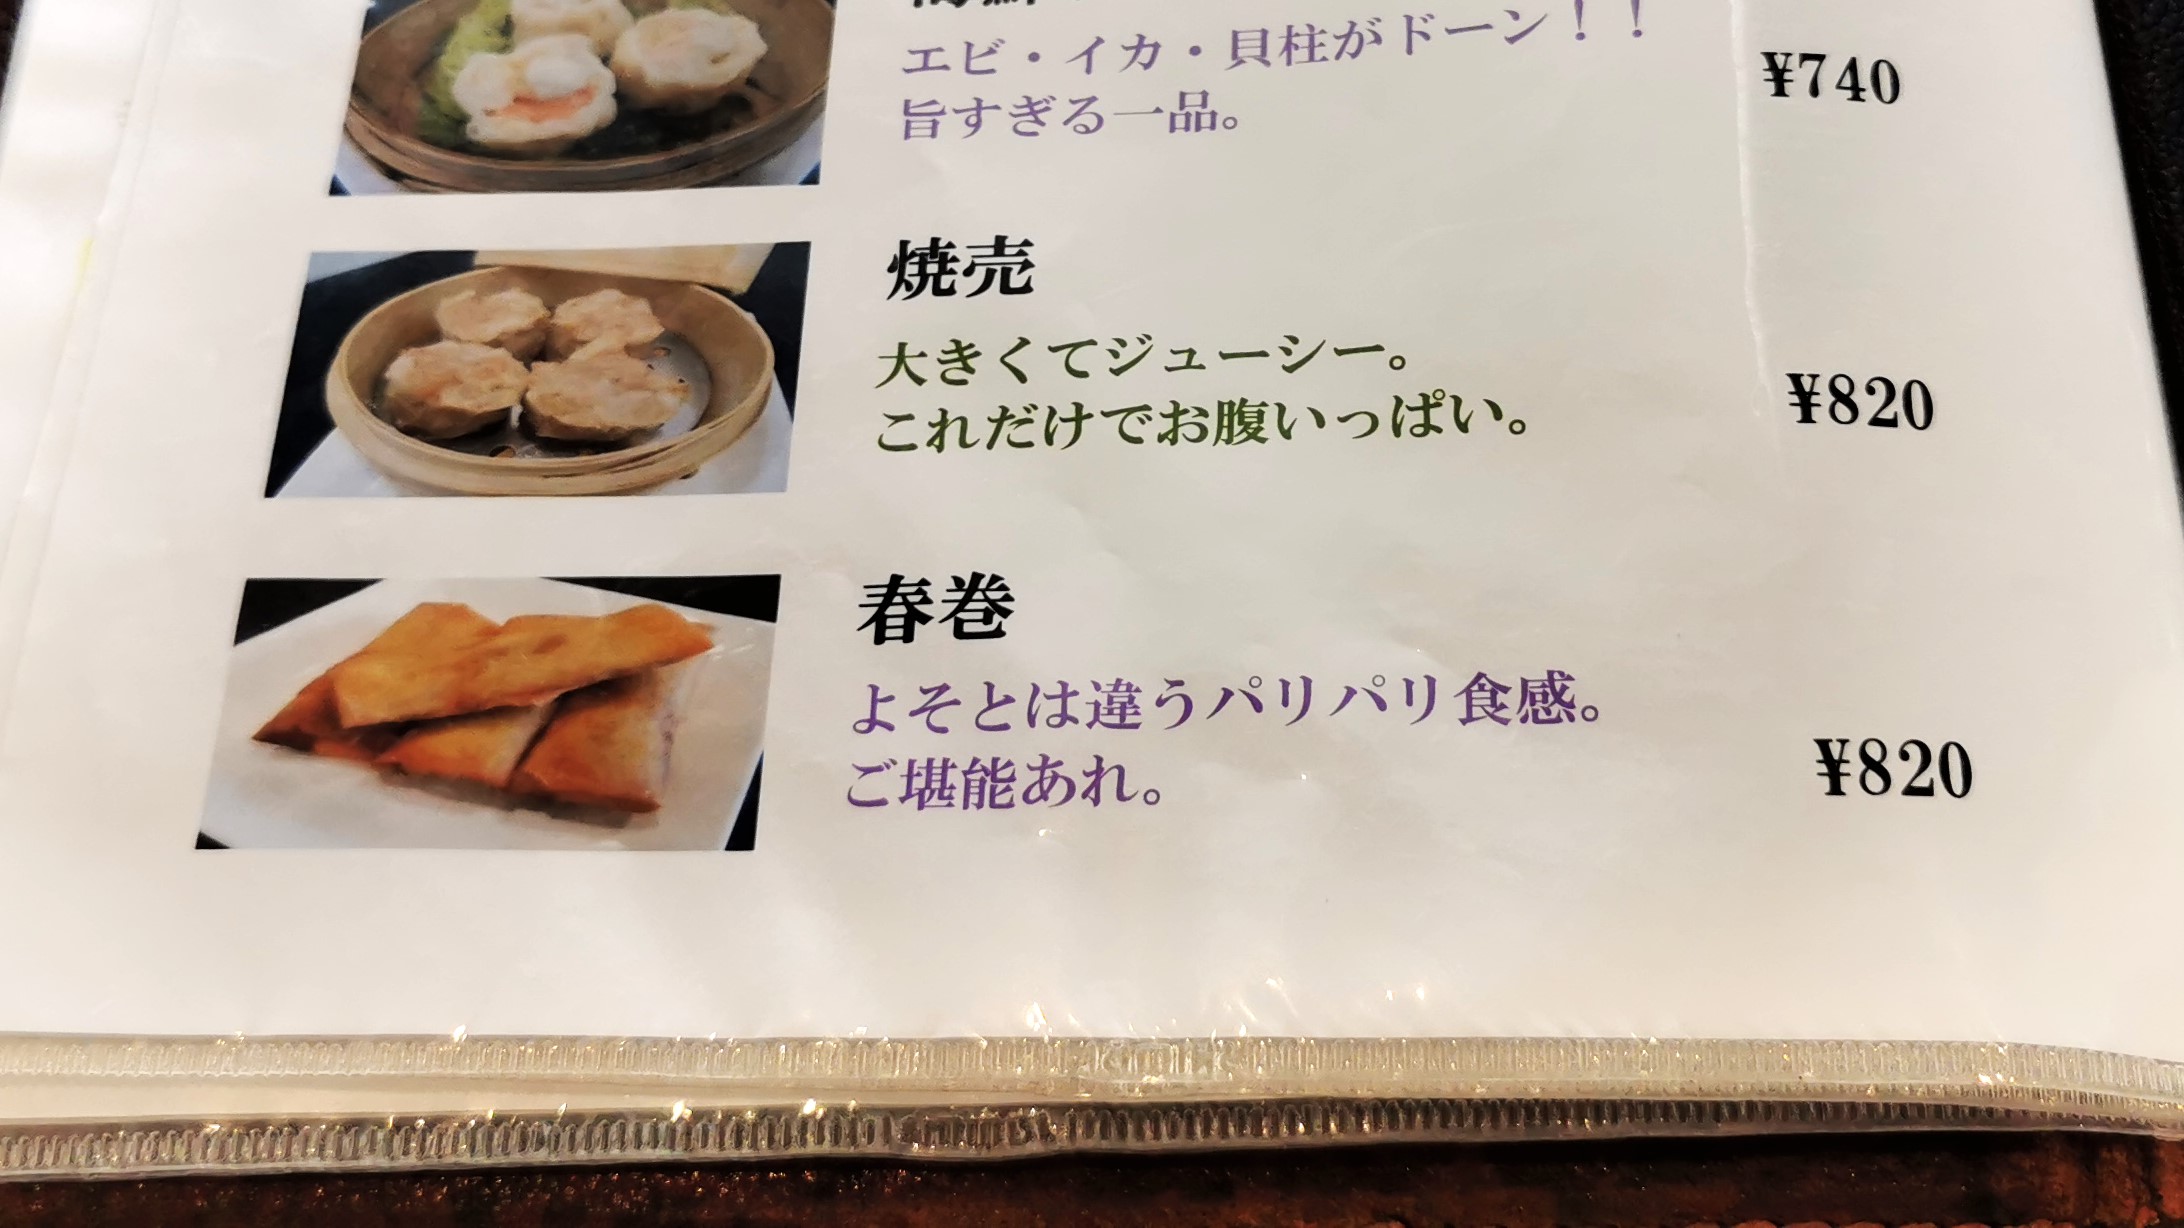 エビ・イカ・貝柱がドーン！！
旨すぎる一品。
¥740
焼売
大きくてジューシー。
これだけでお腹いっぱい。
¥820
春巻
よそとは違うパリパリ食感。
ご堪能あれ。
¥820